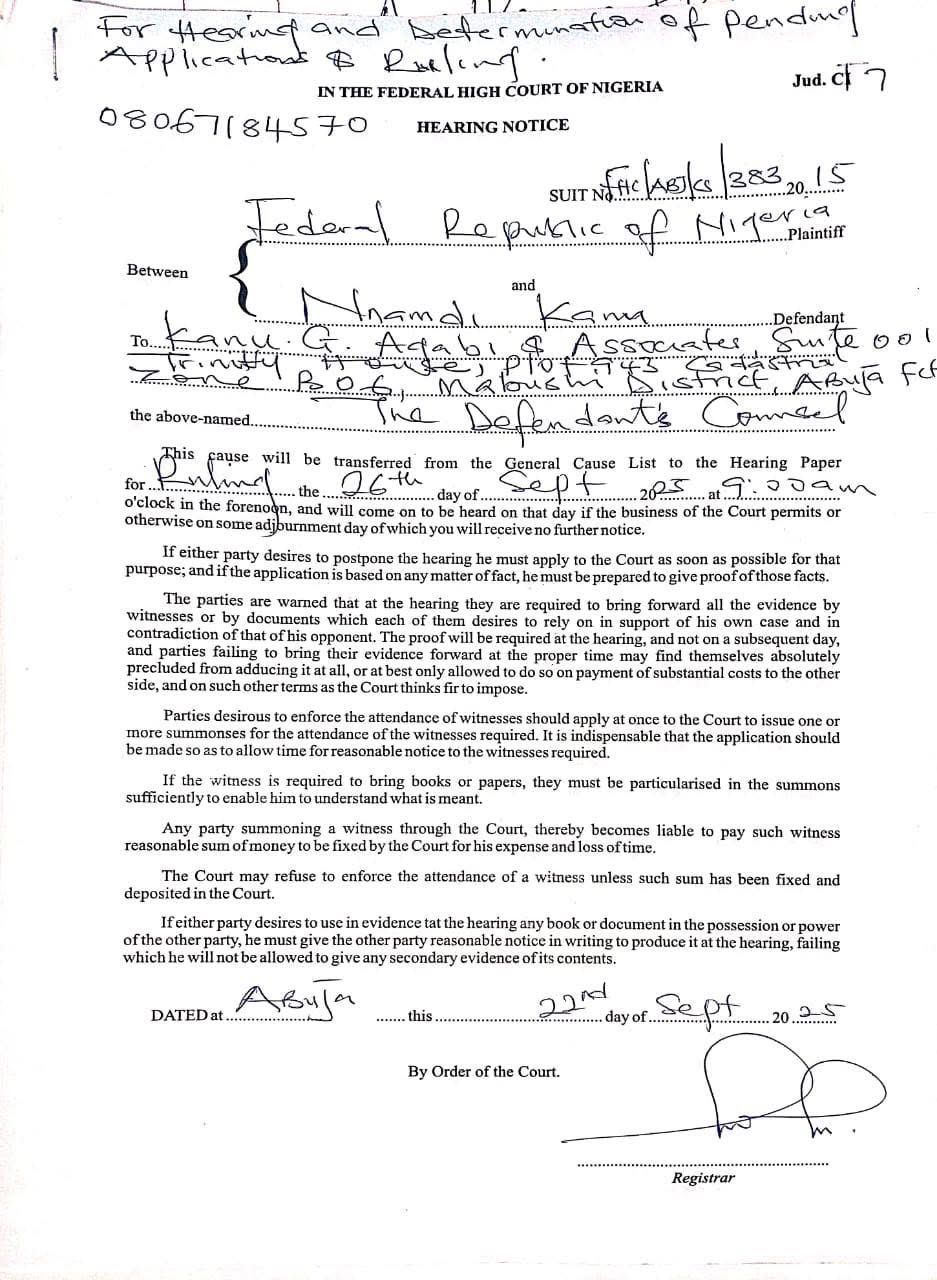 For Hearing and Determination of pending
Applications & Ruling.
Jud. CT 7
IN THE FEDERAL HIGH COURT OF NIGERIA
08067184570
HEARING NOTICE
SUIT No. FHC/ABJ/CS/383 20 15
Federal Republic of Nigeria Plaintiff
Between
and
Nnamdi Kanu Defendant
To Kanu. G. Agabi & Associates, Suite 001
Trinity House, Plot 943 Cadastral
Zone B06, Mabushi District, Abuja FCT
the above-named The Defendant's Counsel
This cause will be transferred from the General Cause List to the Hearing Paper
for Ruling the 26th day of Sept 2025 at 9:00am
o'clock in the forenoon, and will come on to be heard on that day if the business of the Court permits or
otherwise on some adjburnment day of which you will receive no further notice.
If either party desires to postpone the hearing he must apply to the Court as soon as possible for that
purpose; and if the application is based on any matter of fact, he must be prepared to give proof of those facts.
The parties are warned that at the hearing they are required to bring forward all the evidence by
witnesses or by documents which each of them desires to rely on in support of his own case and in
contradiction of that of his opponent. The proof will be required at the hearing, and not on a subsequent day,
and parties failing to bring their evidence forward at the proper time may find themselves absolutely
precluded from adducing it at all, or at best only allowed to do so on payment of substantial costs to the other
side, and on such other terms as the Court thinks fir to impose.
Parties desirous to enforce the attendance of witnesses should apply at once to the Court to issue one or
more summonses for the attendance of the witnesses required. It is indispensable that the application should
be made so as to allow time for reasonable notice to the witnesses required.
If the witness is required to bring books or papers, they must be particularised in the summons
sufficiently to enable him to understand what is meant.
Any party summoning a witness through the Court, thereby becomes liable to pay such witness
reasonable sum of money to be fixed by the Court for his expense and loss of time.
The Court may refuse to enforce the attendance of a witness unless such sum has been fixed and
deposited in the Court.
If either party desires to use in evidence tat the hearing any book or document in the possession or power
of the other party, he must give the other party reasonable notice in writing to produce it at the hearing, failing
which he will not be allowed to give any secondary evidence of its contents.
DATED at Abuja this 22nd day of Sept 20 25
By Order of the Court.
Registrar